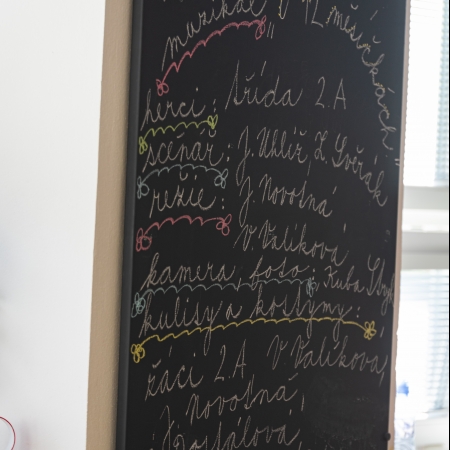 muzikál "
o 12 měsíčkách"
herci: třída 2.A
scénář: J. Uhlíř, Z. Svěrák
režie: J. Novotná
V. Valíková
kamera, foto: Kuba
kulisy a kostýmy:
žáci 2.A V. Valíková,
J. Novotná,
Dostálová,